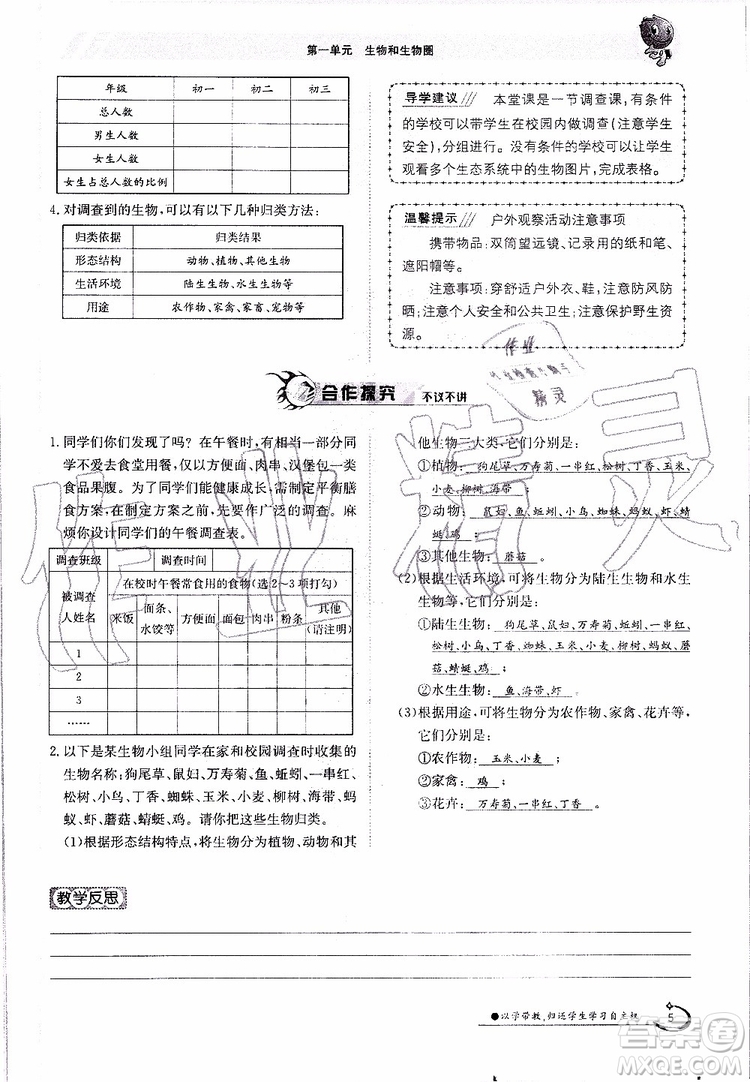 第一单元 生物和生物圈
年级 初一 初二 初三
总人数
男生人数
女生人数
女生占总人数的比例
4. 对调查到的生物,可以有以下几种归类方法:
归类依据 归类结果
形态结构 动物、植物、其他生物
生活环境 陆生生物、水生生物等
用途 农作物、家禽、家畜、宠物等
导学建议 本堂课是一节调查课,有条件
的学校可以带学生在校园内做调查(注意学生
安全),分组进行。没有条件的学校可以让学生
观看多个生态系统中的生物图片,完成表格。
温馨提示 户外观察活动注意事项
携带物品:双筒望远镜、记录用的纸和笔、
遮阳帽等。
注意事项:穿舒适户外衣、鞋,注意防风防
晒;注意个人安全和公共卫生;注意保护野生资
源。
合作探究 不议不讲
1. 同学们你们发现了吗?在午餐时,有相当一部分同
学不去食堂用餐,以方便面、肉串、汉堡包一类的
食品果腹。为了同学们能健康成长,需制定平衡膳
食方案,在制定方案之前,应作广泛的调查。麻
烦你设计同学们的午餐调查表。
调查班级 调查时间
被调查
人姓名
在校时午餐常食用的食物(选2~3项打勾)
米饭 面条、
水饺等 方便面 面包 肉串 粉条 其他
(请注明)
1
2
3
……
2. 以下是某生物小组同学在家和校园调查时收集的
生物名称:狗尾草、鼠妇、万寿菊、鱼、蚯蚓、一串红、
松树、小鸟、丁香、蜘蛛、玉米、小麦、柳树、海带、蚂
蚁、虾、蘑菇、蜻蜓、鸡。请你给这些生物归类。
(1)根据形态结构特点,将生物分为植物、动物和其
他生物三大类,它们分别是:
①植物:狗尾草、万寿菊、一串红、松树、丁香、玉米、
小麦、柳树、海带 ;
②动物:鼠妇、鱼、蚯蚓、小鸟、蜘蛛、蚂蚁、虾、蜻
蜓、鸡 ;
③其他生物: 蘑菇 。
(2)根据生活环境,可将生物分为陆生生物和水生
生物等,它们分别是:
①陆生生物:狗尾草、鼠妇、万寿菊、蚯蚓、一串红、
松树、小鸟、丁香、蜘蛛、玉米、小麦、柳树、蚂蚁、蘑
菇、蜻蜓、鸡 ;
②水生生物: 鱼、海带、虾 。
(3)根据用途,可将生物分为农作物、家禽、花卉等,
它们分别是:
①农作物: 玉米、小麦 ;
②家禽: 鸡 ;
③花卉: 万寿菊、一串红、丁香 。
教学反思
●以学带教,归还学生学习自主权
5
作业
精灵
答案圈
MXQE.COM